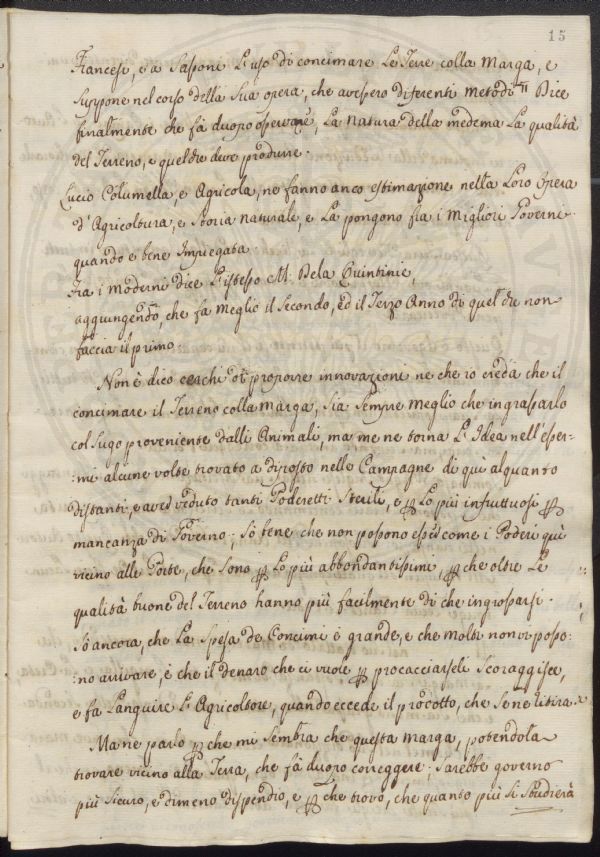 15
Francesi, e a Sassoni l'uso di concimare Le Terre colla Marga, e
Suppone nel corso della Sua opera, che avessero diferenti metodi. Dice
finalmente che fà duopo osservare, La natura della medema La qualità
del Terreno, e quel che deve produrre.
Lucio Columella, e Agricola, ne fanno anco estimazione nella Loro Opera
d'Agricoltura, e Storia naturale, e La pongono fra i Migliori Governi
quando e bene Impiegata.
Fra i Moderni dice L'istesso M. Dela Quintinie,
aggiungendo, che fa meglio il Secondo, ed il Terzo Anno di quel che non
faccia il primo.
Non è dico cerchi di proporre innovazioni ne che io creda che il
concimare il Terreno colla Marga, sia Sempre meglio che ingrassarlo
col Sugo proveniente dalli Animali, ma me ne torna L'Idea nell'esser-
:mi alcune volte trovato a diposto nelle Campagne di quì alquanto
distanti, e aver veduto tanti Poderetti Sterili, e ꝑ Lo più infruttuosi ꝑ
mancanza di Governo; Sò bene che non possono esser come i Poderi quì
vicino alle Porte, che Sono ꝑ Lo più abbondantissimi, ꝑche oltre Le
qualità buone del Terreno hanno più facilmente di che ingrassarsi.
Sò ancora, che La Spesa de Concimi è grande, e che molti non vi posso:
:no arrivare, è che il denaro che ci vuole ꝑ procacciarseli Scoraggisce,
e fa Languire L'Agricoltore, quando eccede il prodotto, che Se ne ritira.
Ma ne parlo ꝑche mi Sembra che questa marga, potendola
trovare vicino alla Terra, che fà duopo correggere; Sarebbe governo
più Sicuro, e di meno dispendio, e ꝑche trovo, che quanto più Si Studierà